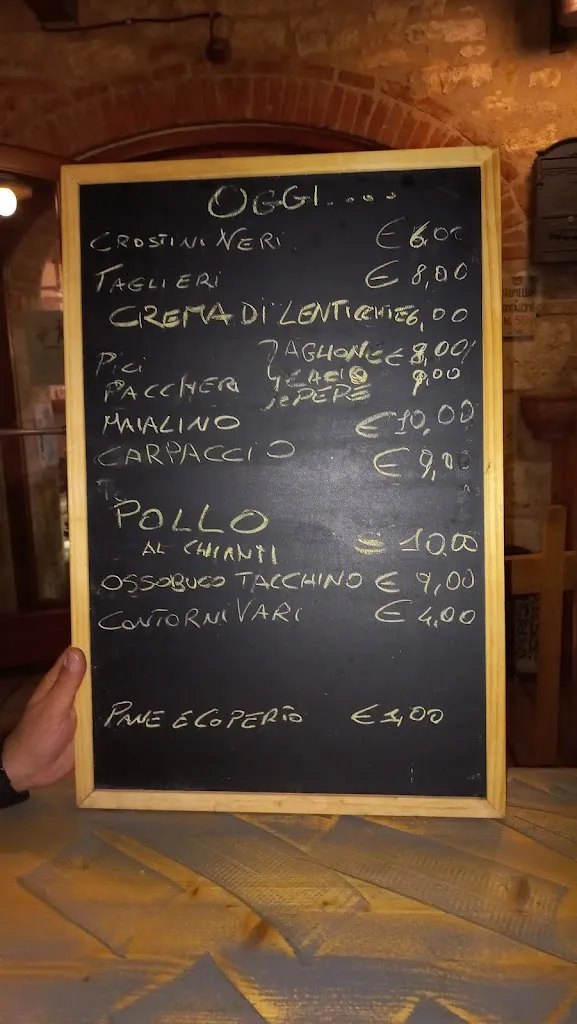 OGGI....
CROSTINI NERI € 6,00
TAGLIERI € 8,00
CREMA DI LENTICCHIE 6,00
PICI AGLIONE € 8,00
PACCHERI CACIO 9,00
PEPE
MAIALINO € 10,00
CARPACCIO € 9,00
POLLO
AL CHIANTI = 10,00
OSSOBUCO TACCHINO € 9,00
CONTORNI VARI € 4,00
PANE E COPERTO €